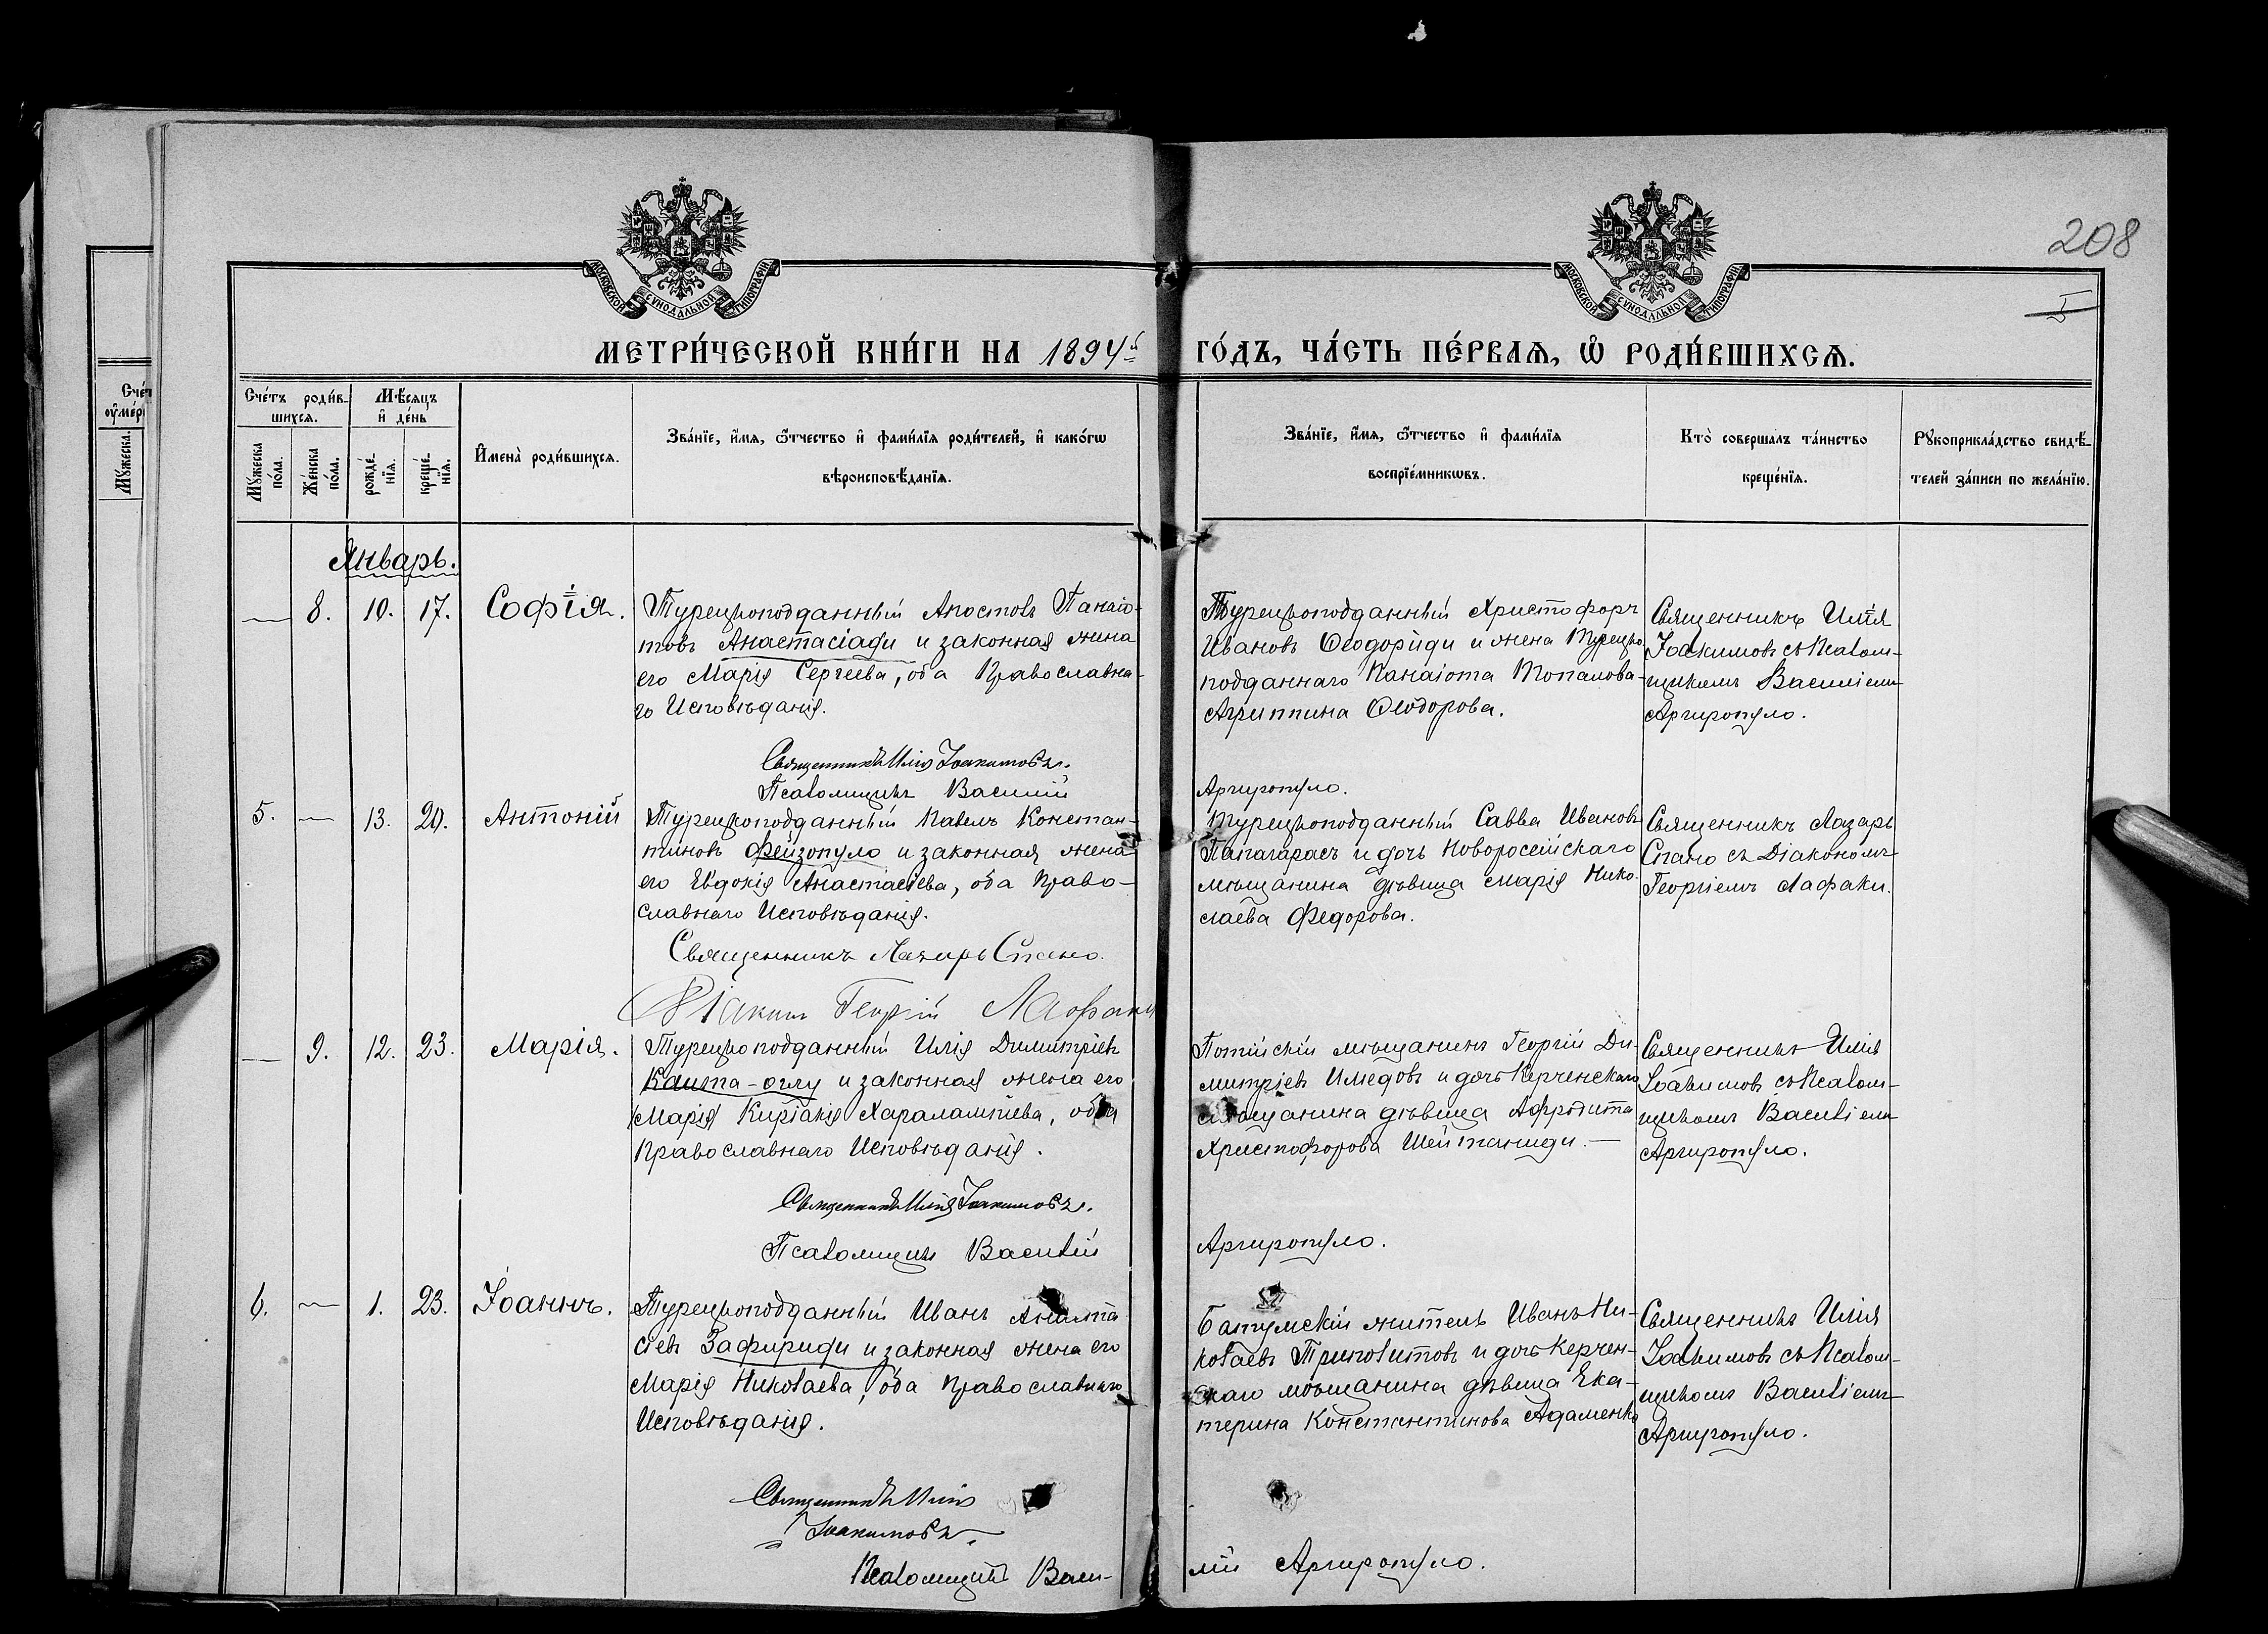 208
МОСКОВСКОЙ СѴНОДАЛЬНОЙ ТИПОГРАФІИ
МОСКОВСКОЙ СѴНОДАЛЬНОЙ ТИПОГРАФІИ
МЕТРИ́ЧЕСКОЙ КНИ́ГИ НА 1894й ГО́ДЪ, ЧА́СТЬ ПЕ́РВАЯ, Ѡ҆ РОДИ́ВШИХСЯ.
Сче́тъ роди́в-
шихся.
Мѣ́сяцъ
и҆ де́нь
Мꙋ́жеска
по́ла.
Же́нска
по́ла.
рожде́-
нїя.
креще́-
нїя.
И҆мена̀ роди́вшихся.
Зва́нїе, и҆́мя, ѻ҆́тчество и҆ фами́лїя роди́телей, и҆ како́гѡ
вѣроисповѣ́данїя.
Зва́нїе, и҆́мя, ѻ҆́тчество и҆ фами́лїя
воспрїе́мникѡвъ.
Кто̀ соверша́лъ та́инство
креще́нїя.
Рꙋкоприкла́дство свидѣ́-
телей за́писи по жела́нїю.
Январь.
— 8. 10. 17. Софія.
Турецкоподданный Апостолъ Панаіо-
товъ Анастасіади и законная жена
его Марія Сергеева, оба Православна-
го Исповѣданія.
Священникъ Илія Іоакимовъ.
Псаломщикъ Василій
Турецкоподданный Христофоръ
Ивановъ Ѳеодориди и жена Турецко
подданнаго Панаіота Попамова-
Агриппина Ѳеодорова.
Аргиропуло.
Священникъ Илія
Іоакимовъ съ Псалом-
щикомъ Василіемъ
Аргиропуло.
5. — 13. 20. Антоній
Турецкоподданный Павелъ Констан-
тиновъ Фейзопуло и законная жена
его Евдокія Анастасіева, оба Право-
славнаго Исповѣданія.
Священникъ Лазарь Спано.
Діаконъ Георгій Лафаки
Турецкоподданный Савва Ивановъ
Папагарасъ и дочь Новоросійскаго
мѣщанина дѣвица Марія Нико-
лаева Федорова.
Священникъ Лазарь
Спано съ Діакономъ
Георгіемъ Лафаки.
— 9. 12. 23. Марія.
Турецкоподданный Илія Димитріевъ
Каита-оглу и законная жена его
Марія Киріакія Харалампіева, оба
Православнаго Исповѣданія.
Священникъ Илія Іоакимовъ.
Псаломщикъ Василій
Потійскій мѣщанинъ Георгій Ди-
митріевъ Имедовъ и дочь Керченскаго
мѣщанина дѣвица Афродита
Христофорова Шейтаниди. —
Аргиропуло.
Священникъ Илія
Іоакимовъ съ Псалом-
щикомъ Василіемъ
Аргиропуло.
6. — 1. 23. Іоаннъ.
Турецкоподданный Иванъ Анаста
сіевъ Зафириди и законная жена его
Марія Николаева, оба Православнаго
Исповѣданія.
Священникъ Илія
Іоакимовъ.
Псаломщикъ Васи-
Батумскій житель Иванъ Ни-
колаевъ Триполитовъ и дочь Керчен-
скаго мѣщанина дѣвица Ека-
терина Константинова Адаменко
лій Аргиропуло.
Священникъ Илія
Іоакимовъ съ Псалом-
щикомъ Василіемъ
Аргиропуло.